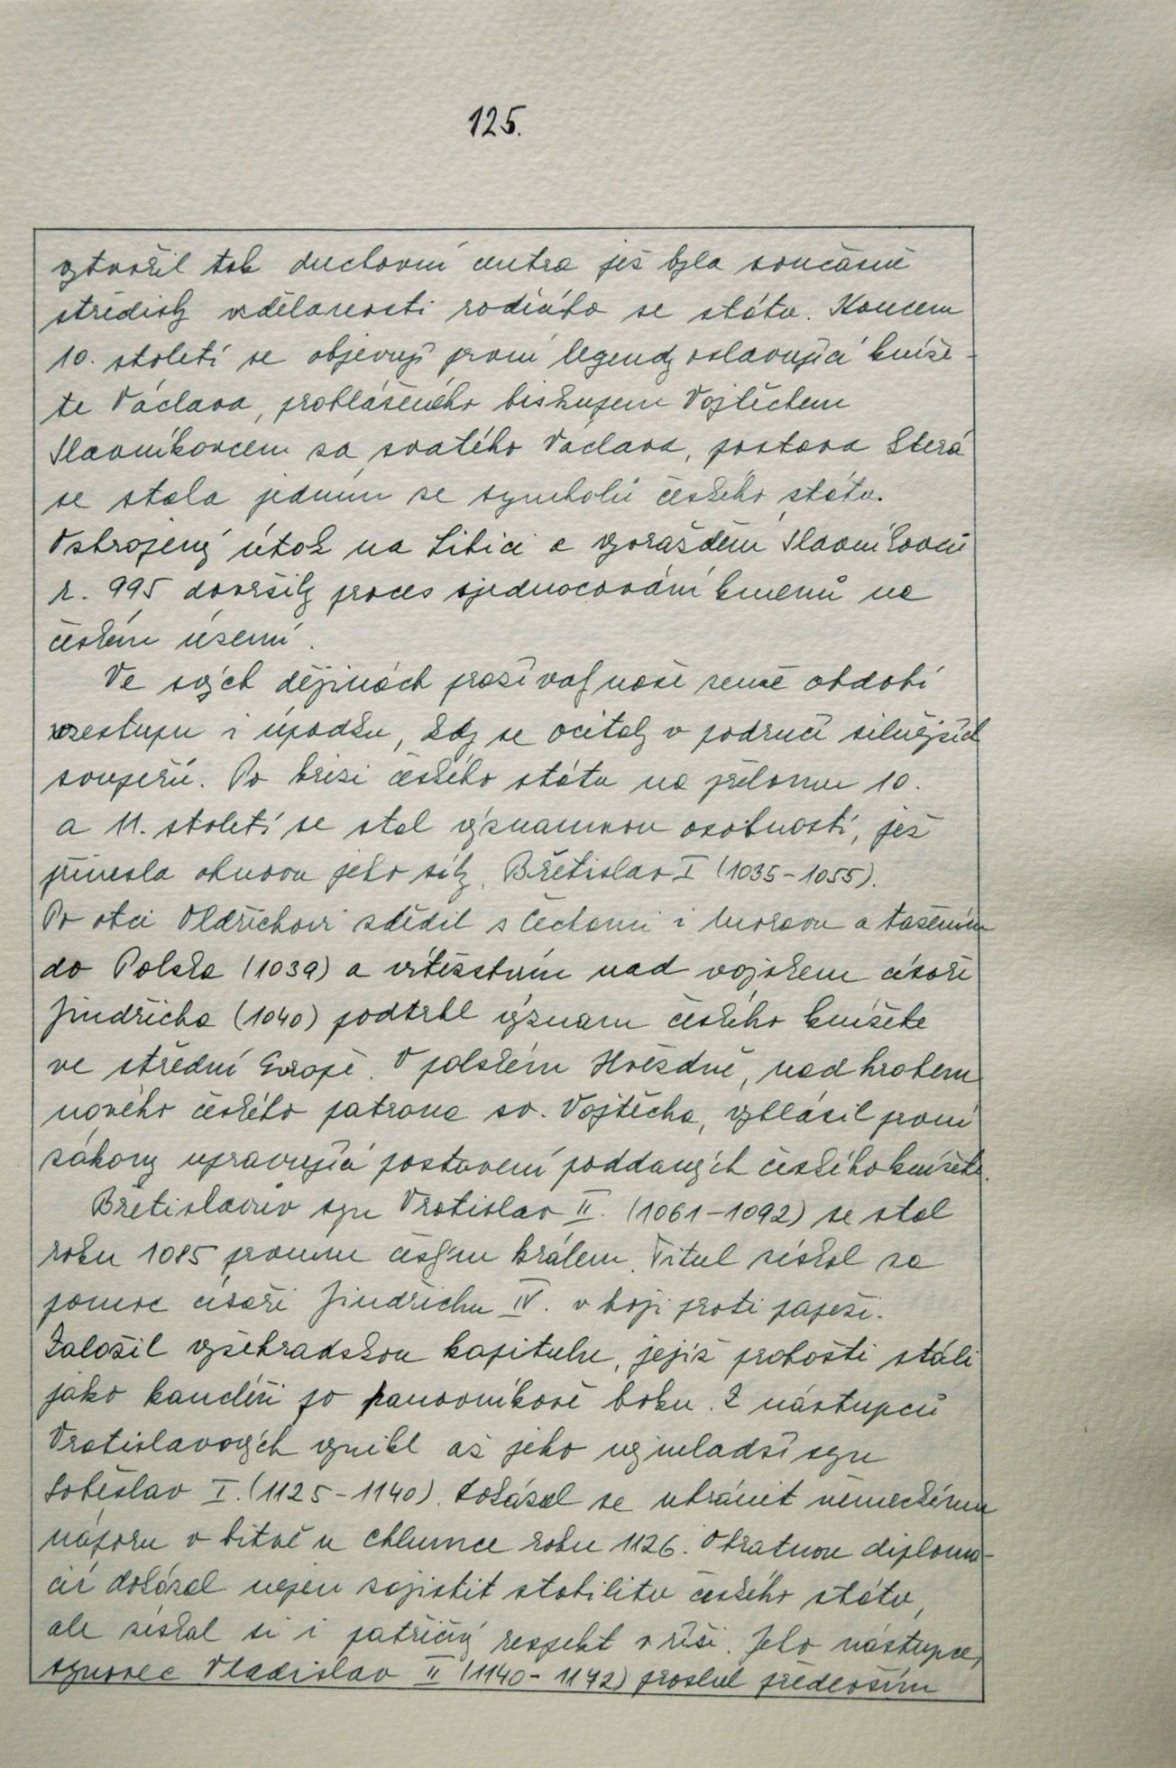 125.
vytvořil tak duchovní centra jež byla současně
středisky vzdělanosti rodícího se státu. Koncem
10. století se objevují první legendy oslavující kníže-
te Václava, prohlášeného biskupem Vojtěchem
Slavníkovcem za svatého Václava, postava která
se stala jedním ze symbolů českého státu.
Ozbrojený útok na Libici a vyvraždění Slavníkovců
r. 995 dovršily proces sjednocování kmenů na
českém území.
Ve svých dějinách prožívaly naše země období
vzestupu i úpadku, kdy se ocitaly v područí silnějších
soupeřů. Po krizi českého státu na přelomu 10.
a 11. století se stal významnou osobností, jež
přinesla obnovu jeho síly, Břetislav I (1035-1055).
Po otci Oldřichovi zdědil s Čechami i Moravu a tažením
do Polska (1039) a vítězstvím nad vojskem císaře
Jindřicha (1040) podtrhl význam českého knížete
ve střední Evropě. V polském Hvězdně, nad hrobem
nového českého patrona sv. Vojtěcha, vyhlásil první
zákony upravující postavení poddaných českého knížete.
Břetislavův syn Vratislav II. (1061-1092) se stal
roku 1085 prvním českým králem. Titul získal za
pomoc císaři Jindřichu IV. v boji proti papeži.
Založil vyšehradskou kapitulu, jejíž probošti stáli
jako kancléři po panovníkově boku. Z nástupců
Vratislavových vynikl až jeho nejmladší syn
Soběslav I. (1125-1140). Dokázal se ubránit německému
náporu v bitvě u Chlumce roku 1126. Obratnou diploma-
cií dokázal nejen zajistit stabilitu českého státu,
ale získal si i patřičný respekt v říši. Jeho nástupce,
synovec Vladislav II (1140-1172) proslul především